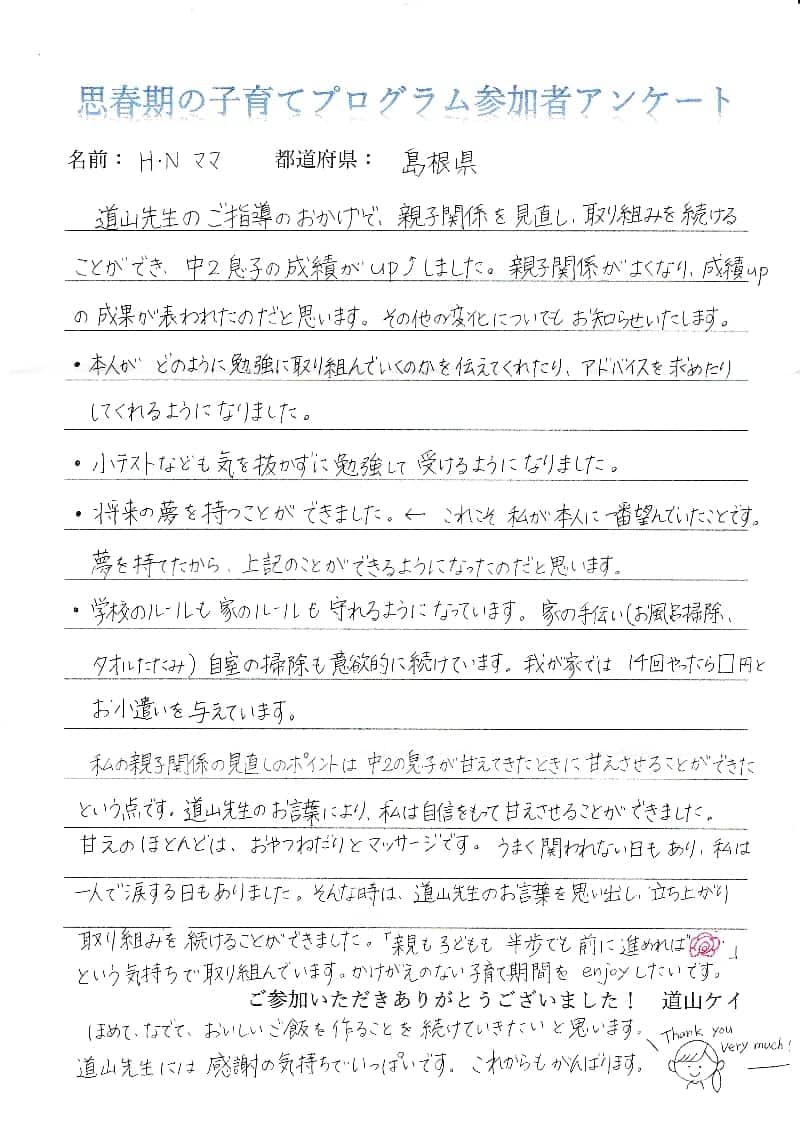 思春期の子育てプログラム参加者アンケート
名前： H・N ママ 都道府県： 島根県
道山先生のご指導のおかげで、親子関係を見直し、取り組みを続ける
ことができ、中2息子の成績がup⤴しました。親子関係がよくなり、成績up
の成果が表われたのだと思います。その他の変化についてもお知らせいたします。
・本人が どのように勉強に取り組んでいくのかを伝えてくれたり、アドバイスを求めたり
してくれるようになりました。
・小テストなども気を抜かずに勉強して受けるようになりました。
・将来の夢を持つことができました。← これこそ私が本人に一番望んでいたことです。
夢を持てたから、上記のことができるようになったのだと思います。
・学校のルールも家のルールも守れるようになっています。家の手伝い(お風呂掃除、
タオルたたみ)自室の掃除も意欲的に続けています。我が家では 1回やったら□円と
お小遣いを与えています。
私の親子関係の見直しのポイントは中2の息子が甘えてきたときに甘えさせることができた
という点です。道山先生のお言葉により、私は自信をもって甘えさせることができました。
甘えのほとんどは、おやつねだりとマッサージです。うまく関われない日もあり、私は
一人で涙する日もありました。そんな時は、道山先生のお言葉を思い出し、立ち上がり
取り組みを続けることができました。「親も子どもも 半歩でも前に進めれば 」
という気持ちで取り組んでいます。かけがえのない子育て期間を enjoyしたいです。
ご参加いただきありがとうございました！ 道山ケイ
ほめて、なでて、おいしいご飯を作ることを続けていきたいと思います。
道山先生には感謝の気持ちでいっぱいです。これからもがんばります。
Thank you
very much!